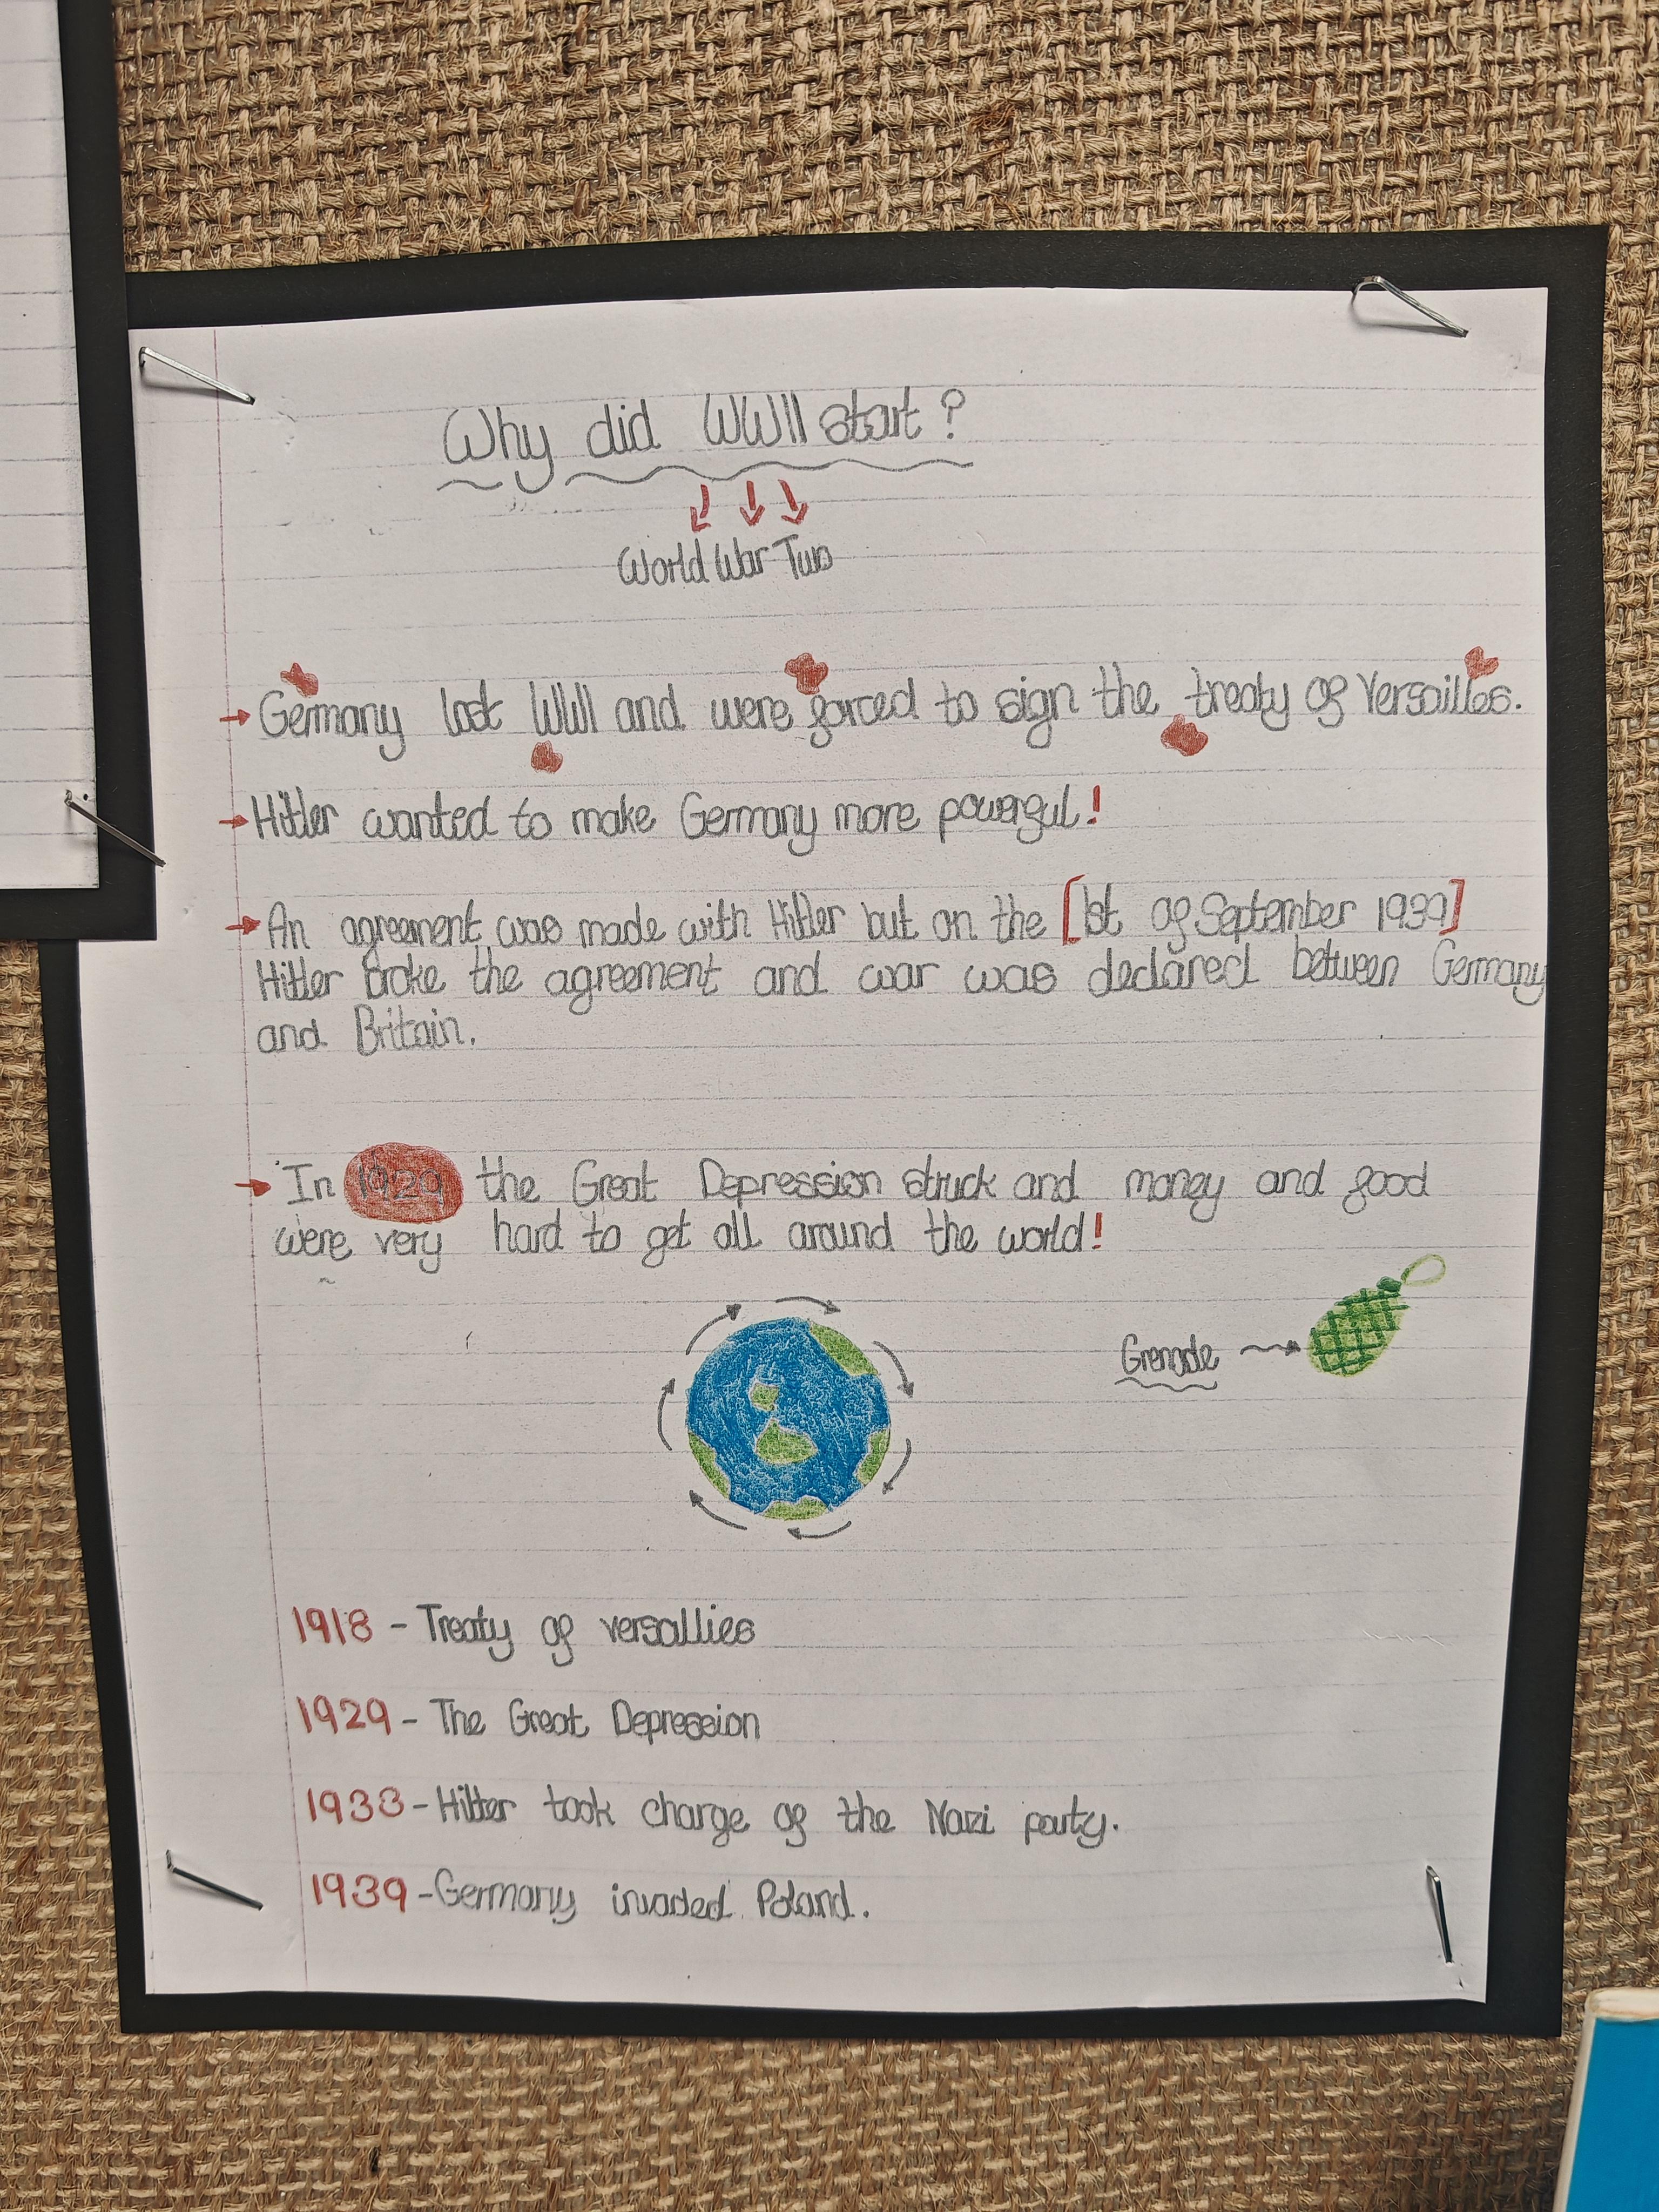 Why did WWII start?
World War Two
Germany lost WWI and were forced to sign the treaty of Versailles.
Hitler wanted to make Germany more powerful!
An agreement was made with Hitler but on the [1st of September 1939]
Hitler broke the agreement and war was declared between Germany
and Britain.
In 1929 the Great Depression struck and money and good
were very hard to get all around the world!
Grenade
1918 - Treaty of versallies
1929 - The Great Depression
1933 - Hilter took charge of the Nazi party.
1939 - Germany invaded Poland.